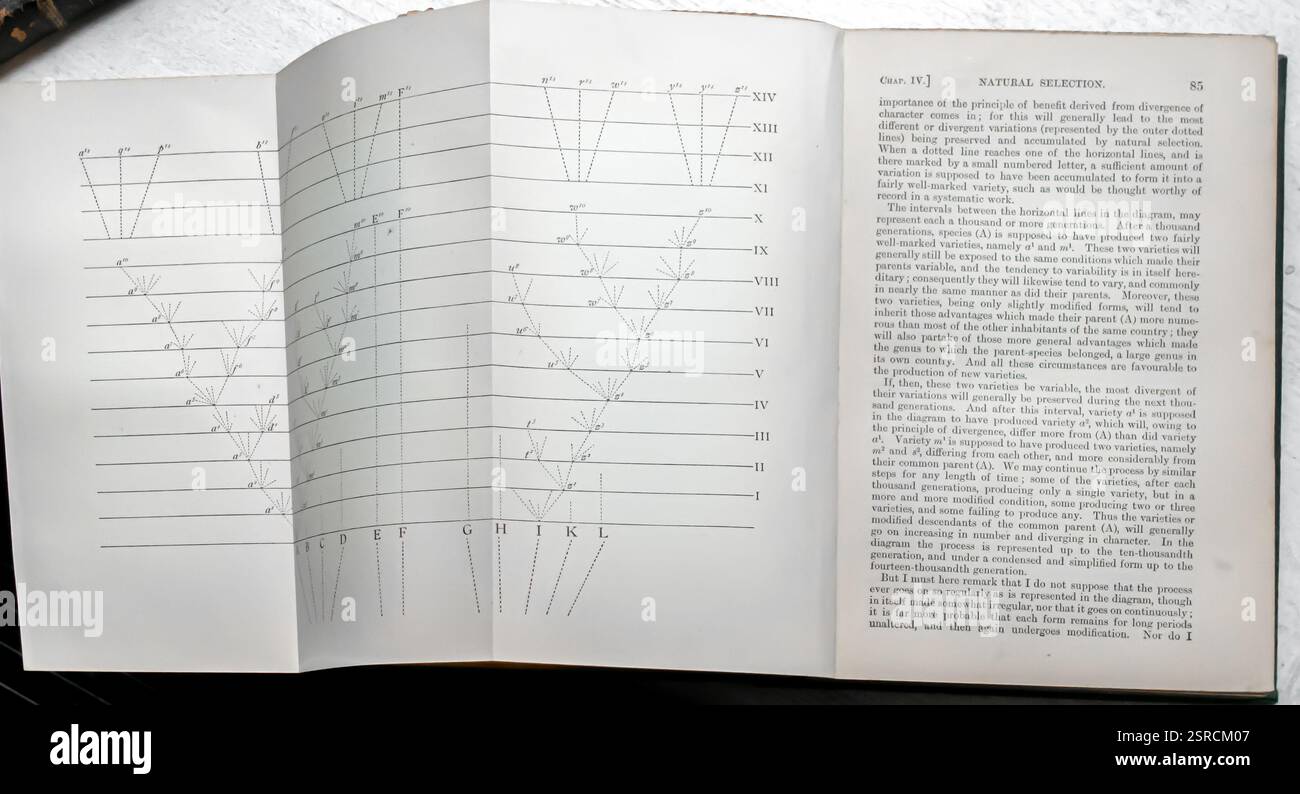 CHAP. IV.] NATURAL SELECTION. 85
importance of the principle of benefit derived from divergence of
character comes in; for this will generally lead to the most
different or divergent variations (represented by the outer dotted
lines) being preserved and accumulated by natural selection.
When a dotted line reaches one of the horizontal lines, and is
there marked by a small numbered letter, a sufficient amount of
variation is supposed to have been accumulated to form it into a
fairly well-marked variety, such as would be thought worthy of
record in a systematic work.
The intervals between the horizontal lines in the diagram, may
represent each a thousand or more generations. After a thousand
generations, species (A) is supposed to have produced two fairly
well-marked varieties, namely a¹ and m¹. These two varieties will
generally still be exposed to the same conditions which made their
parents variable, and the tendency to variability is in itself here-
ditary; consequently they will likewise tend to vary, and commonly
in nearly the same manner as did their parents. Moreover, these
two varieties, being only slightly modified forms, will tend to
inherit those advantages which made their parent (A) more nume-
rous than most of the other inhabitants of the same country; they
will also partake of those more general advantages which made
the genus to which the parent-species belonged, a large genus in
its own country. And all these circumstances are favourable to
the production of new varieties.
If, then, these two varieties be variable, the most divergent of
their variations will generally be preserved during the next thou-
sand generations. And after this interval, variety a¹ is supposed
in the diagram to have produced variety a², which will, owing to
the principle of divergence, differ more from (A) than did variety
a¹. Variety m¹ is supposed to have produced two varieties, namely
m² and s², differing from each other, and more considerably from
their common parent (A). We may continue the process by similar
steps for any length of time; some of the varieties, after each
thousand generations, producing only a single variety, but in a
more and more modified condition, some producing two or three
varieties, and some failing to produce any. Thus the varieties or
modified descendants of the common parent (A), will generally
go on increasing in number and diverging in character. In the
diagram the process is represented up to the ten-thousandth
generation, and under a condensed and simplified form up to the
fourteen-thousandth generation.
But I must here remark that I do not suppose that the process
ever goes on so regularly as is represented in the diagram, though
in itself made somewhat irregular, nor that it goes on continuously;
it is far more probable that each form remains for long periods
unaltered, and then again undergoes modification. Nor do I
a¹⁴ q¹⁴ p¹⁴ b¹⁴ f¹⁴ o¹⁴ i¹⁴ m¹⁴ F¹⁴ n¹⁴ r¹⁴ w¹⁴ y¹⁴ v¹⁴ z¹⁴
XIV
XIII
XII
XI
m¹⁰ E¹⁰ F¹⁰ w¹⁰ z¹⁰ X
IX
a¹⁰
VIII
VII
VI
V
IV
III
II
I
B C D E F G H I K L
alamy
Image ID: 2SRCM07
www.alamy.com